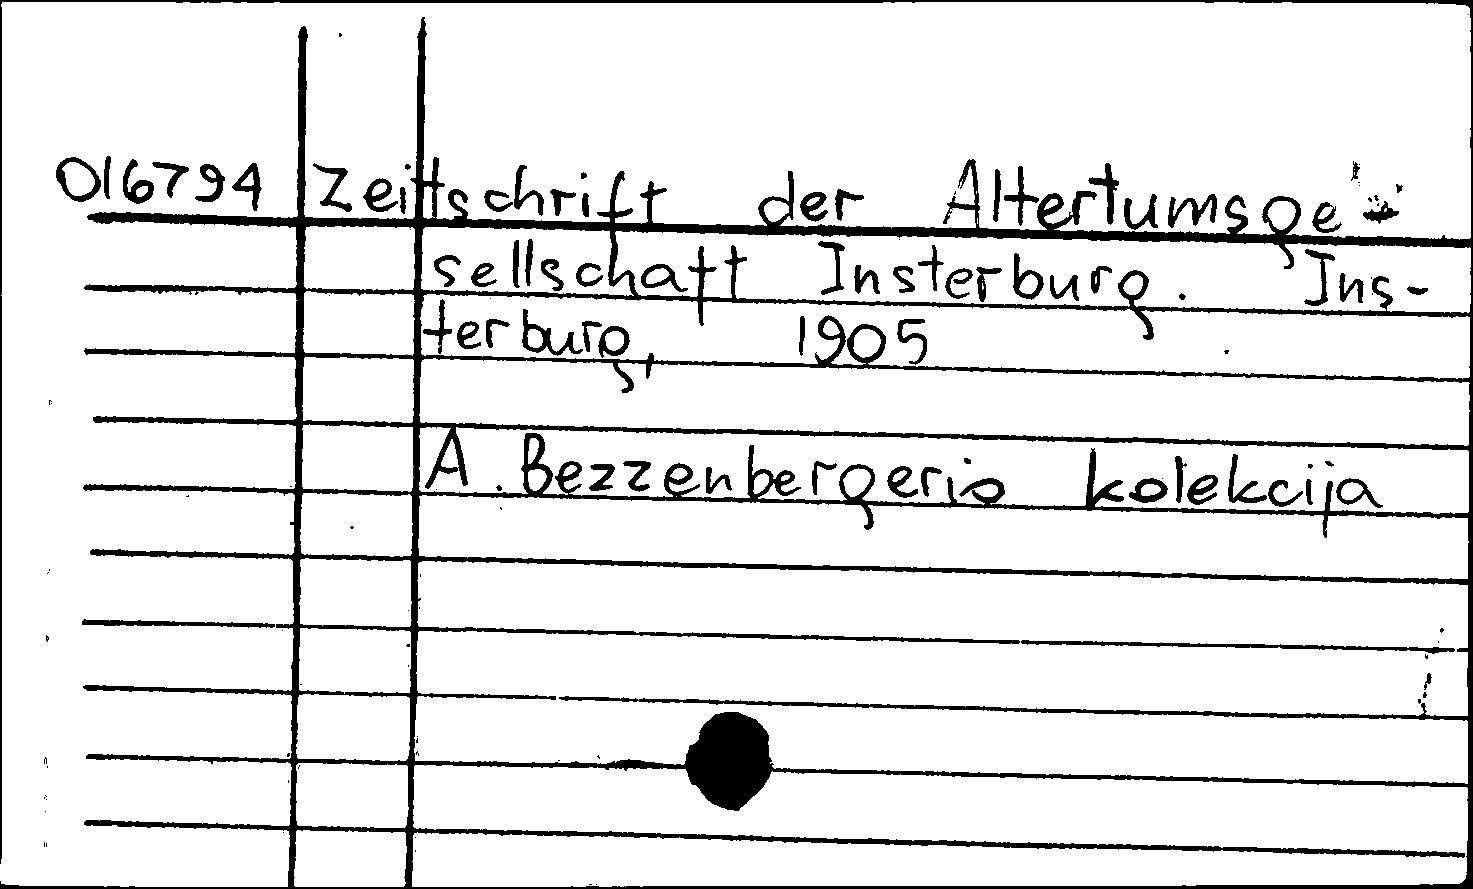 016794 Zeitschrift der Altertumsge-
sellschaft Insterburg. Ins-
terburg, 1905
A. Bezzenbergerio kolekcija